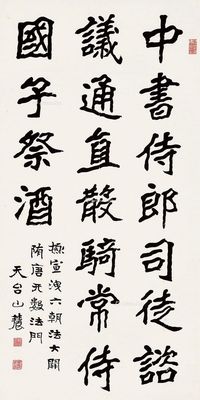 中書侍郎司徒諮
議通直散騎常侍
國子祭酒
宣洩六朝法大開
隋唐无數法門
天台山農